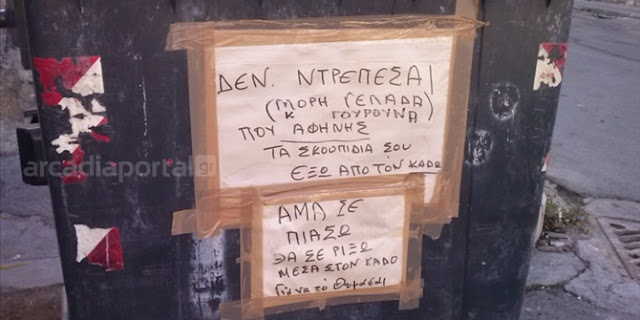 ΔΕΝ. ΝΤΡΕΠΕΣΑΙ
(ΜΟΡΗ ΓΕΛΑΔΑ)
Κ ΓΟΥΡΟΥΝΑ
ΠΟΥ ΑΦΗΝΗΣ
ΤΑ ΣΚΟΥΠΙΔΙΑ ΣΟΥ
ΕΞΩ ΑΠΟ ΤΟΝ ΚΑΔΟ
ΑΜΑ ΣΕ
ΠΙΑΣΩ
ΘΑ ΣΕ ΡΙΞΩ
ΜΕΣΑ ΣΤΟΝ ΚΑΔΟ
Για να το θυμάσαι
arcadiaportal.gr